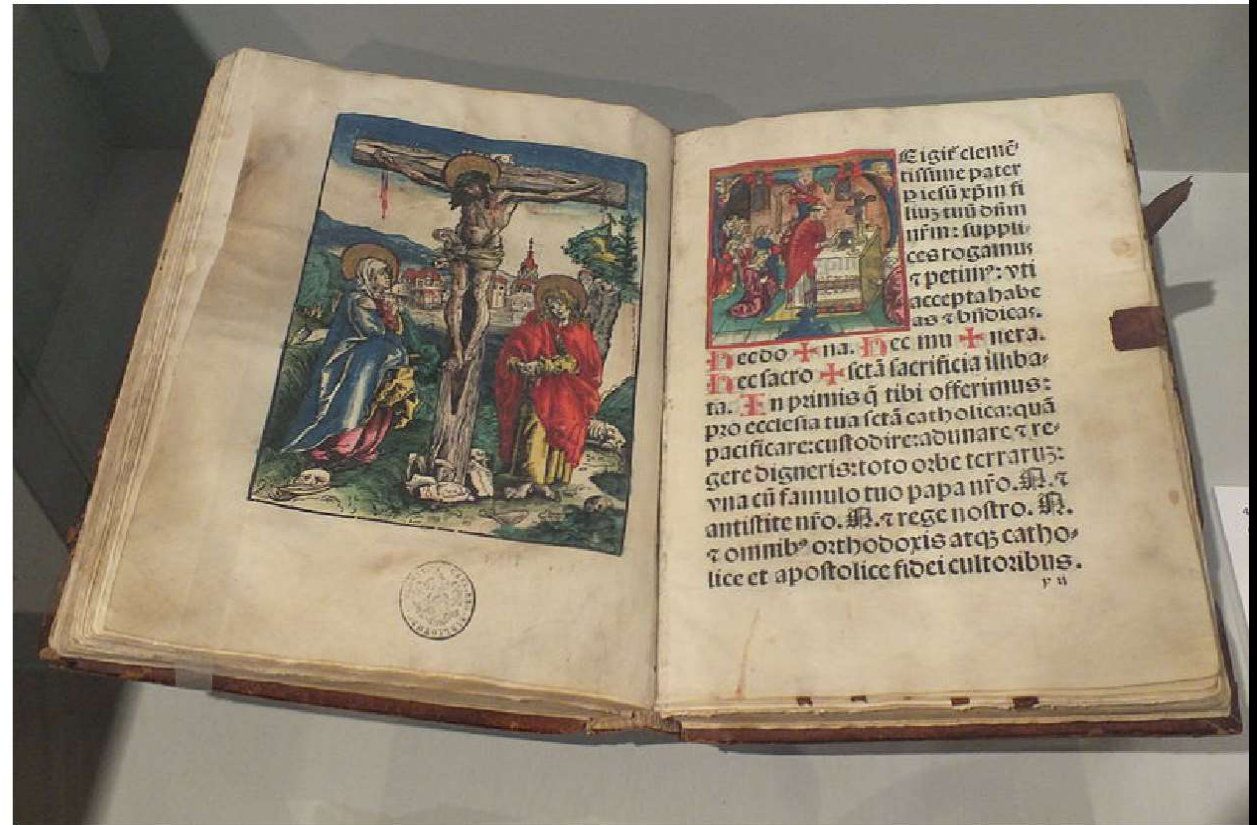 E igit᷑ clemē
tissime pater
p iesū xp̄m fi
liuꝫ tuū dn̄m
nr̄m: suppli-
ces rogamus
⁊ petimꝰ: vti
accepta habe
as ⁊ bn̄dicas.
Hec do ✠ na. Hec mu ✠ nera.
Hec sacro ✠ sctā sacrificia illiba-
ta. In primis q̄ tibi offerimus:
pro ecclesia tua sctā catholica: quā
pacificare: custodire: adunare ⁊ re-
gere digneris: toto orbe terraruꝫ:
vna cū famulo tuo papa nr̄o. N. ⁊
antistite nr̄o. N. ⁊ rege nostro. N.
⁊ omnibꝰ orthodoxis atqꝫ catho-
lice et apostolice fidei cultoribus.